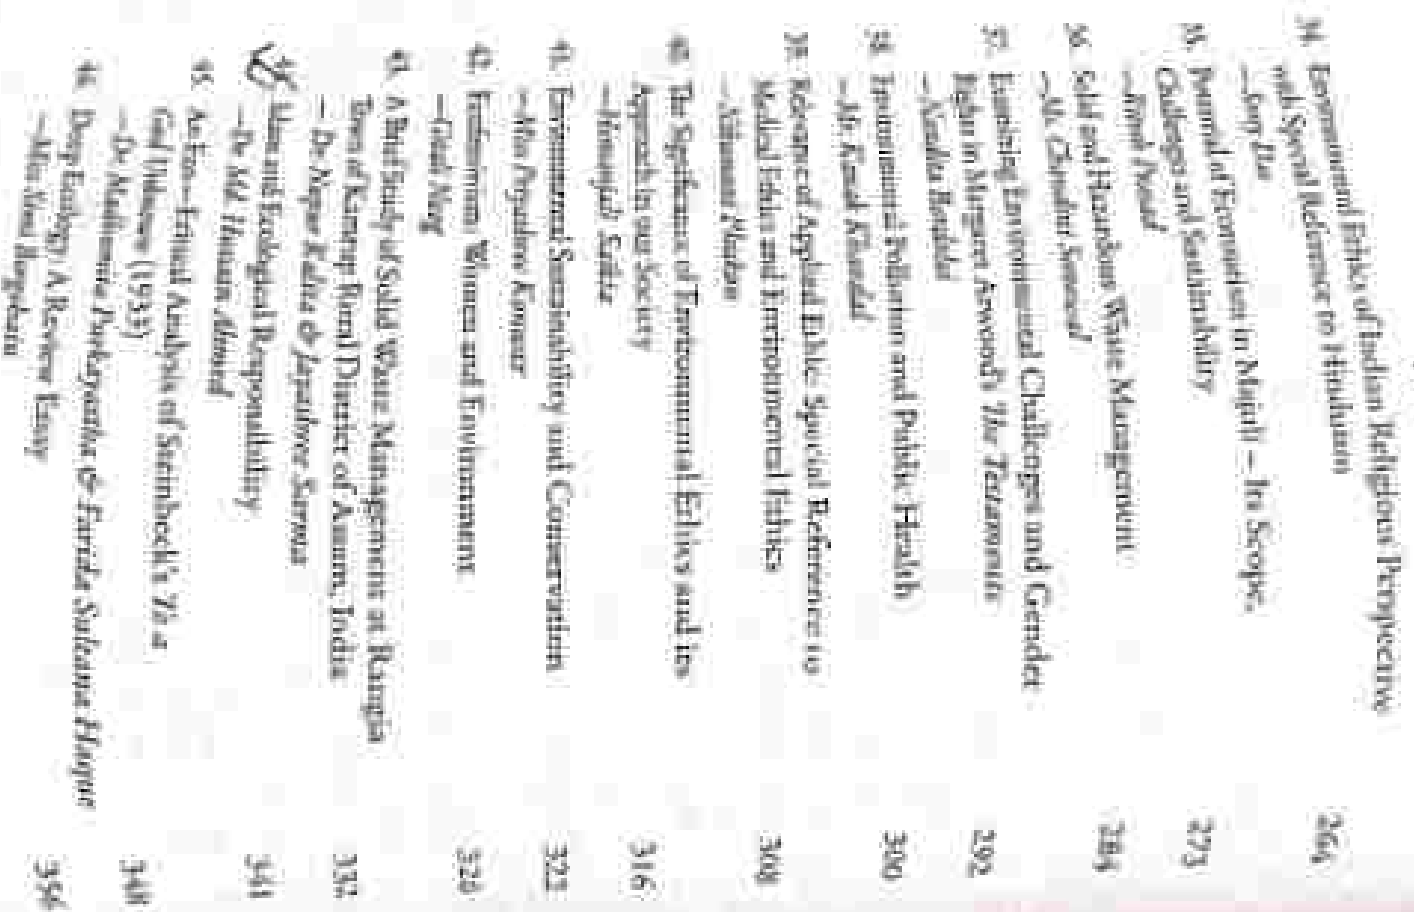 34. Environmental Ethics of Indian Religious Perspective
with Special Reference to Hinduism
264
35. Potential of Ecotourism in Majuli – Its Scope,
Challenges and Sustainability
273
36. Solid and Hazardous Waste Management
284
37. Examining Environmental Challenges and Gender
Fights in Margaret Atwood's The Testaments
—Nandita
292
38. Environmental Pollution and Public Health
300
39. Relevance of Applied Ethic: Special Reference to
Medical Ethics and Environmental Ethics
308
40. The Significance of Environmental Ethics and its
Approach in our Society
316
41. Environmental Sustainability and Conservation
—Miss Priyashree Konwar
323
42. Ecofeminism: Women and Environment
328
43. A Brief Study of Solid Waste Management at Rangia
Town of Kamrup Rural District of Assam, India
— Dr Nripen Kalita & Jayashree Sarma
332
44. Man and Ecological Responsibility
—Dr Md. Ahmed
341
45. An Eco—Critical Analysis of Steinbeck's To a
God Unknown (1933)
—Dr Purkayastha & Farida Sultana Haque
348
46. Deep Ecology: A Review Essay
356